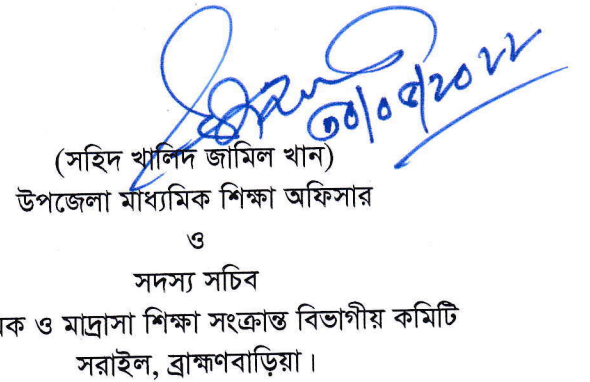 ৩০/০৫/২০২২
(সহিদ খালিদ জামিল খান)
উপজেলা মাধ্যমিক শিক্ষা অফিসার
ও
সদস্য সচিব
ও মাদ্রাসা শিক্ষা সংক্রান্ত বিভাগীয় কমিটি
সরাইল, ব্রাহ্মণবাড়িয়া।